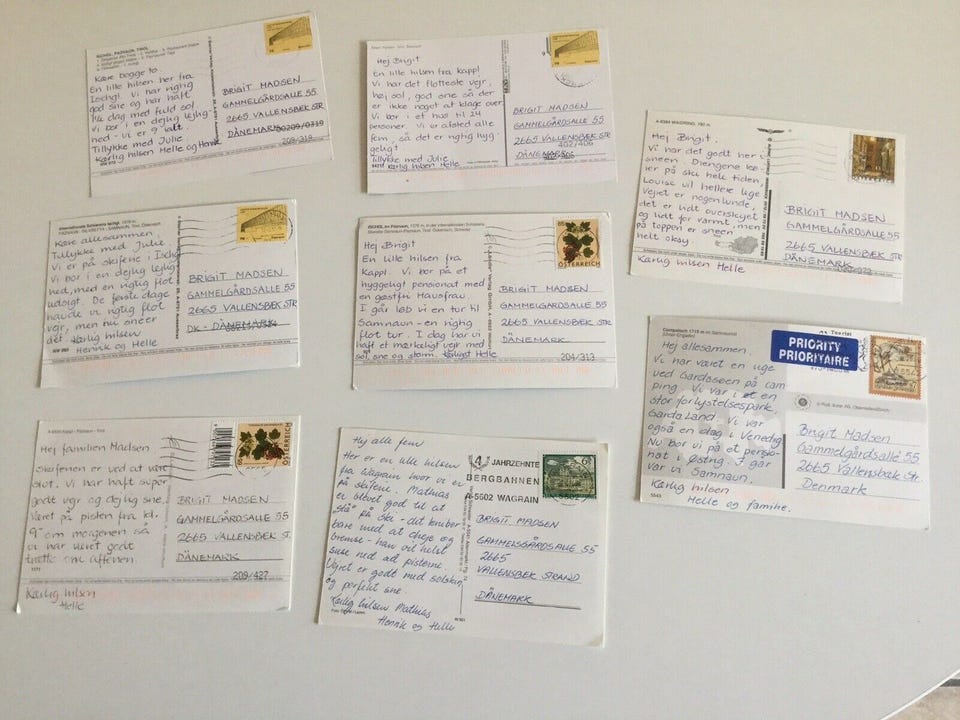 ISCHGL, PAZNAUN, TIROL
Kære begge to.
En lille hilsen her fra
Ischgl. Vi har rigtig
god sne og har haft
dag med fuld sol.
Vi bor i en dejlig lejlig-
hed - vi er 9 ialt.
Tillykke med Julie
Kærlig hilsen Helle og Henrik
BRIGIT MADSEN
GAMMELGÅRDSALLE 55
2665 VALLENSBÆK STR
DÄNEMARK
Hej Brigit
En lille hilsen fra Kappl
Vi har det flotteste vejr,
høj sol, god sne så der
er ikke noget at klage over
Vi bor i et hus til 24
personer. Vi er afsted alle
fem, så det er rigtig hyg
geligt
Tillykke med Julie
Kærlig hilsen Helle
BRIGIT MADSEN
GAMMELGÅRDSALLE 55
2665 VALLENSBÆK STR
DÄNEMARK
402/406
A-5584 WAGRAIN,
Hej Brigit.
Vi har det godt her i
sneen. Drengene kø-
rer på ski hele tiden,
Louise vil hellere lige
Vejret er nogenlunde,
det er lidt overskyet
og lidt for varmt, men
på toppen er sneen
helt okay.
Kærlig hilsen Helle
BRIGIT MADSEN
GAMMELGÅRDSALLE 55
2665 VALLENSBÆK STR
DÄNEMARK
Kære allesammen.
Tillykke med Julie.
Vi er på skiferie i Ischgl
Vi bor i en dejlig lejlig
hed, med en rigtig flot
udsigt. De første dage
havde vi rigtig flot
vejr, men nu sneer
det. Kærlig hilsen
Henrik og Helle
BRIGIT MADSEN
GAMMELGÅRDSALLE 55
2665 VALLENSBÆK STR
DK - DÄNEMARK
Hej Brigit
En lille hilsen fra
Kappl. Vi bor på et
hyggeligt pensionat med
en gæstfri Hausfrau.
I går løb vi en tur til
Samnaun - en rigtig
flot tur I dag har vi
haft et mærkeligt vejr med
sol, sne og storm. Kærligst Helle
ÖSTERREICH
BRIGIT MADSEN
GAMMELGÅRDSALLE 55
2665 VALLENSBÆK STR
DÄNEMARK
204/313
Hej allesammen.
Vi har været en uge
ved Gardasøen på cam
ping. Vi var i et en
stor forlystelsespark,
Garda Land. Vi var
også en dag i Venedig
Nu bor vi på et pensio-
nat i Østrig. I går
var vi Samnaun.
Kærlig hilsen
Helle og familie.
PRIORITY
PRIORITAIRE
Brigit Madsen
Gammelgårdsalle 55
2665 Vallensbæk Str.
Denmark
Hej familien Madsen
Skiferien er ved at være
slut. Vi har haft super
godt vejr og dejlig sne.
Været på pisten fra kl.
9 om morgenen så
vi har været godt
trætte om aftenen.
Kærlig hilsen
Helle
ÖSTERREICH
BRIGIT MADSEN
GAMMELGÅRDSALLE 55
2665 VALLENSBÆK ST.
DÄNEMARK
209/427
Hej alle fem
Her er en lille hilsen
fra Wagrain hvor vi er
på skiferie. Mathias
er blevet god til at
stå på ski - det kniber
bare med at dreje og
bremse - han vil helst
suse ned ad pisterne.
Vejret er godt med solskin
og perfekt sne.
Kærlig hilsen Mathias
Henrik og Helle
4 JAHRZEHNTE
BERGBAHNEN
A-5602 WAGRAIN
BRIGIT MADSEN
GAMMELSGÅRDSALLE 55
2665
VALLENSBÆK STRAND
DÄNEMARK